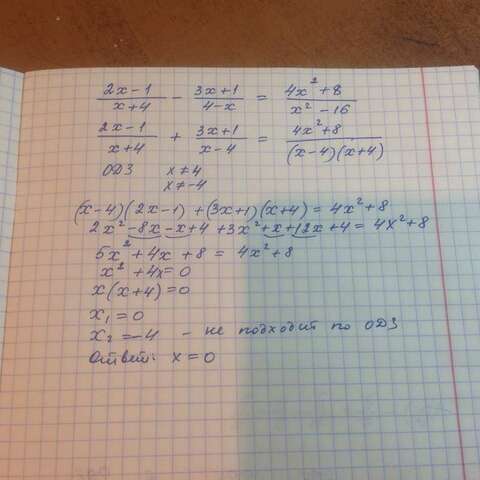 (2x-1)/(x+4) - (3x+1)/(4-x) = (4x²+8)/(x²-16)
(2x-1)/(x+4) + (3x+1)/(x-4) = (4x²+8)/((x-4)(x+4))
ОДЗ x≠4
x≠-4
(x-4)(2x-1)+(3x+1)(x+4)=4x²+8
2x²-8x-x+4+3x²+x+12x+4=4x²+8
5x²+4x+8=4x²+8
x²+4x=0
x(x+4)=0
x₁=0
x₂=-4 - не подходит по ОДЗ
Ответ: x=0